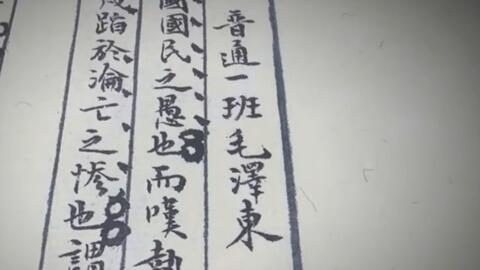 普通一班毛澤東
國國民之愚也而嘆執
蹈於淪亡之慘也謂